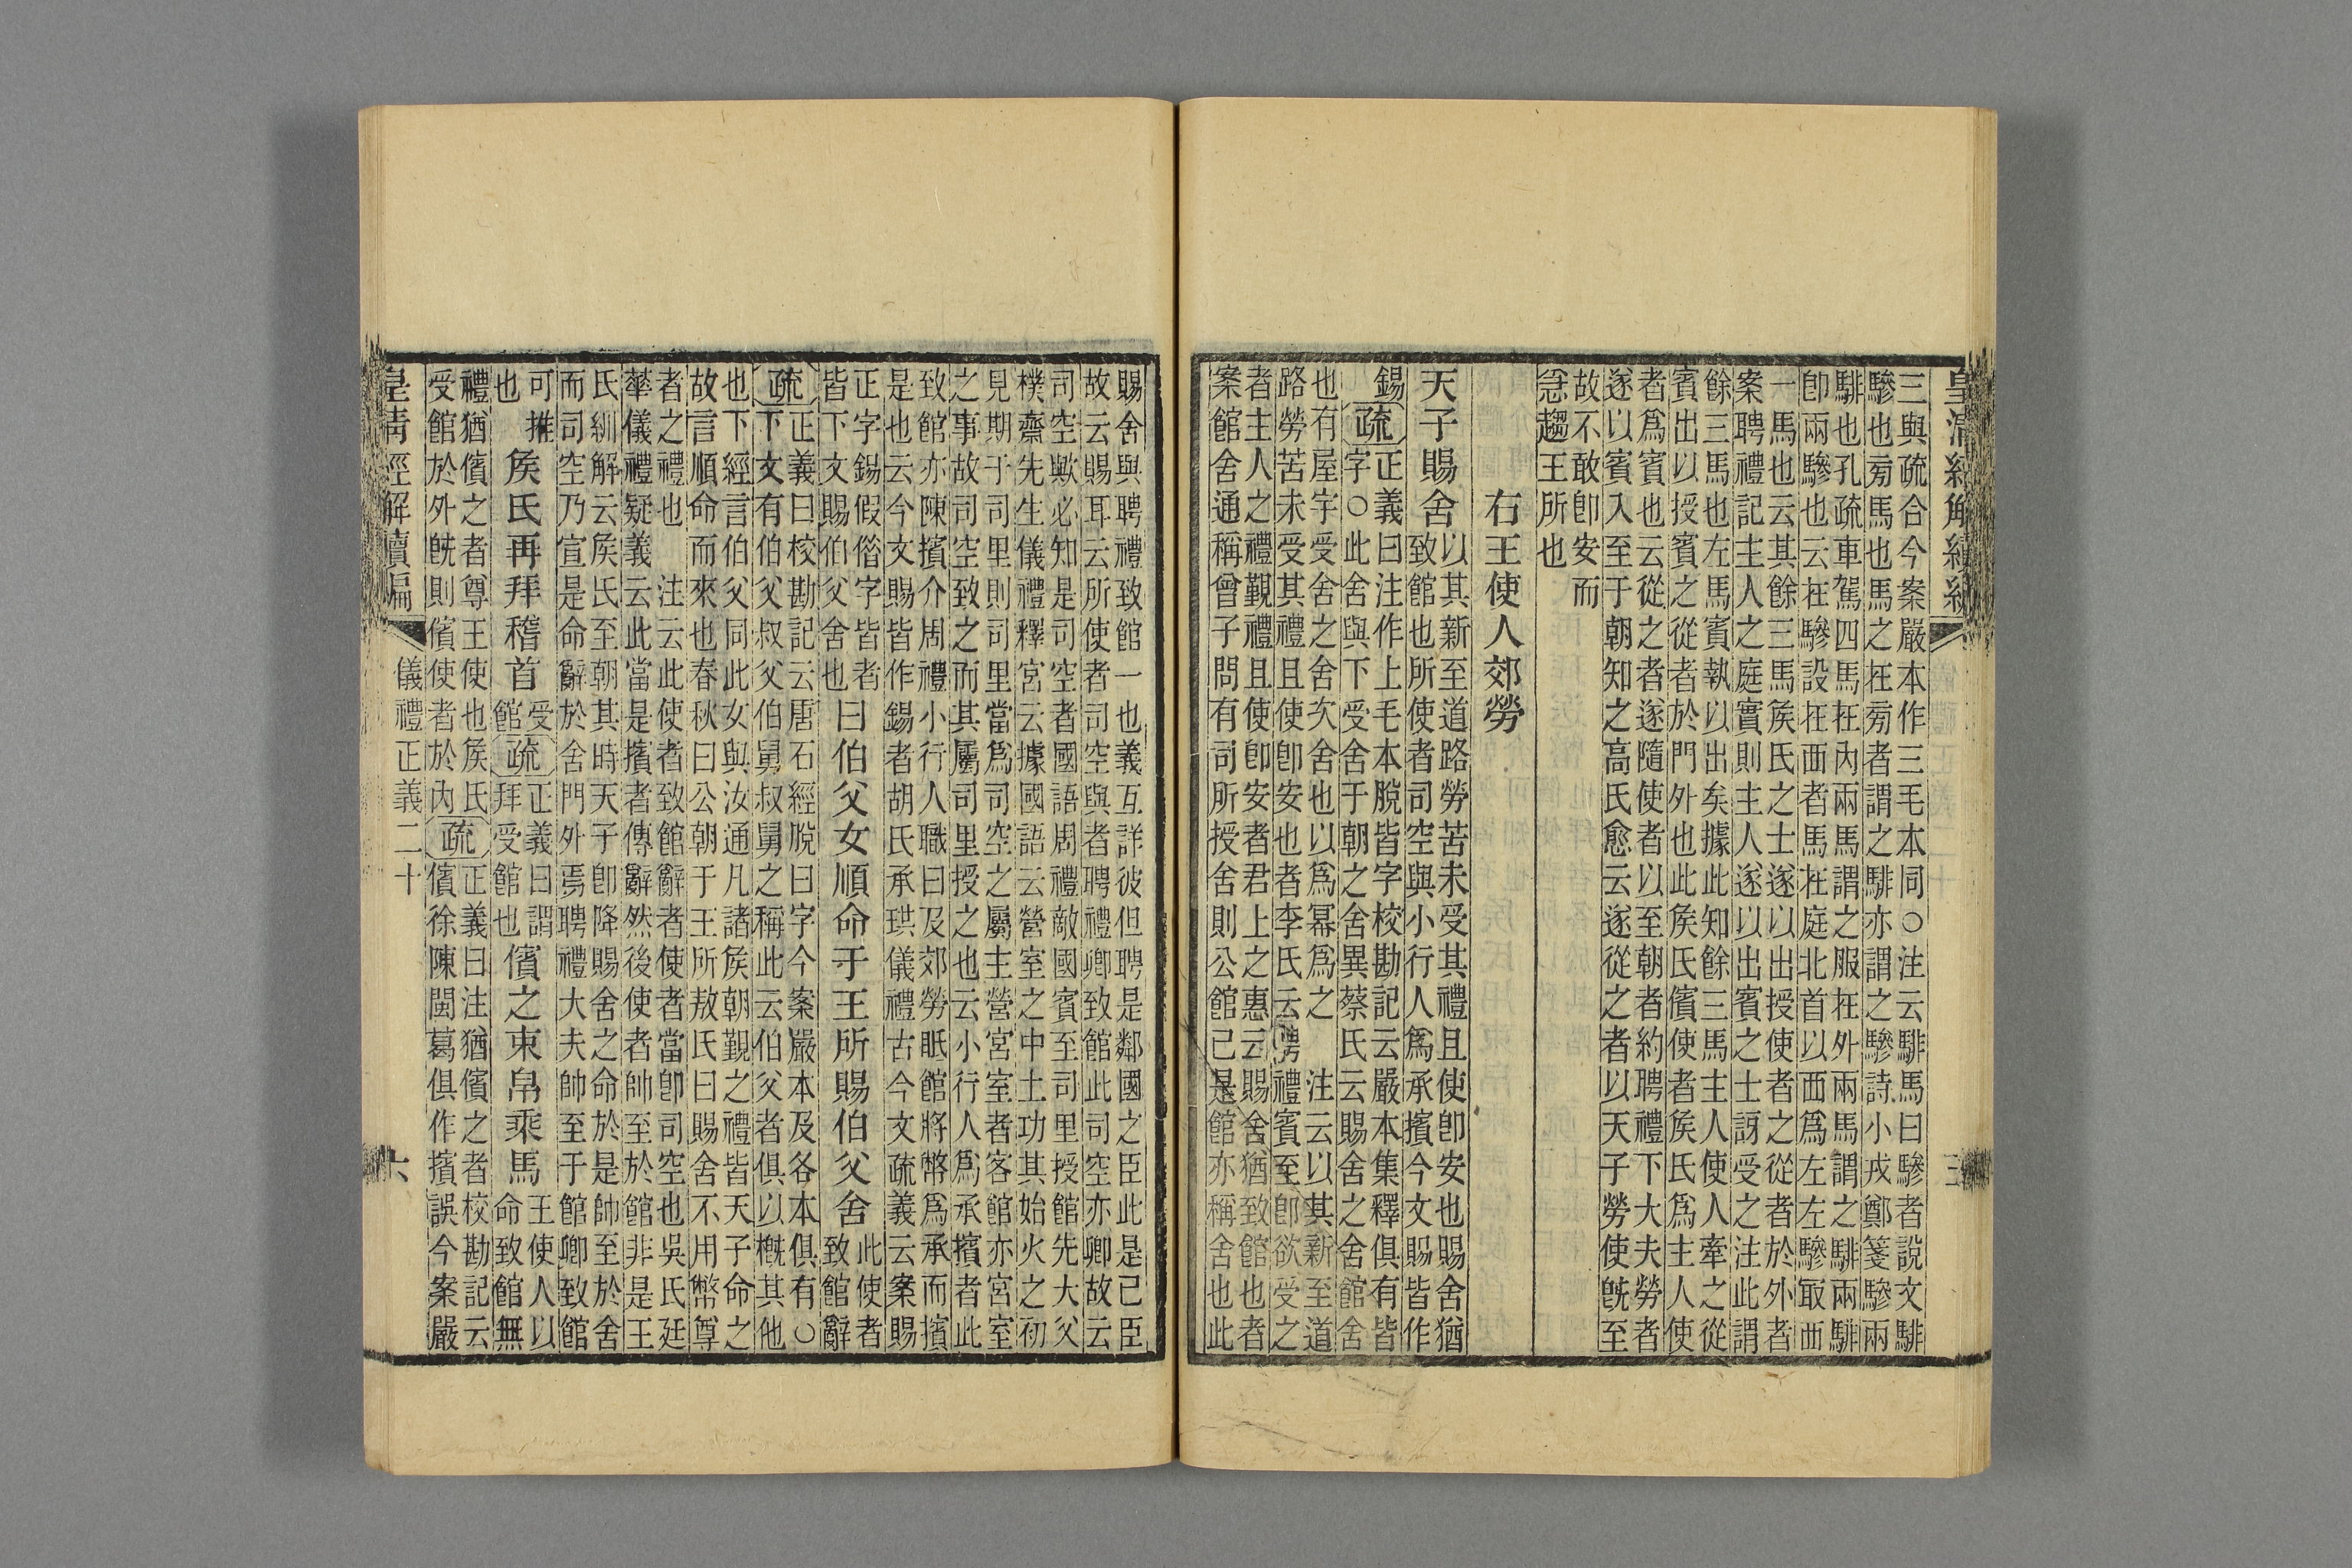 皇清經解續編
三與疏合今案嚴本作三毛本同○注云騑馬曰驂者說文騑
驂也㫄馬也馬之在㫄者謂之騑亦謂之驂詩小戎鄭箋驂兩
騑也孔疏車駕四馬在內兩馬謂之服在外兩馬謂之騑兩騑
卽兩驂也云在驂設在西者馬在庭北首以西爲左左驂取西
一馬也云其餘三馬矦氏之士遂以出授使者之從者於外者
案聘禮記主人之庭實則主人遂以出賓之士訝受之注此謂
餘三馬也左馬賓執以出矣據此知餘三馬主人使人牽之從
賓出以授賓之從者於門外也此矦氏儐使者矦氏爲主人使
者爲賓也云從之者遂隨使者以至朝者約聘禮下大夫勞者
遂以賓入至于朝知之高氏愈云遂從之者以天子勞使旣至
故不敢卽安而
急趨王所也
右王使人郊勞
天子賜舍
以其新至道路勞苦未受其禮且使卽安也賜舍猶
致館也所使者司空與小行人爲承擯今文賜皆作
錫
疏
正義曰注作上毛本脫皆字校勘記云嚴本集釋俱有皆
字○此舍與下受舍于朝之舍異蔡氏云賜舍之舍館舍
也有屋宇受舍之舍次舍也以爲幂爲之 注云以其新至道
路勞苦未受其禮且使卽安也者李氏云聘禮賓至卽欲受之
者主人之禮覲禮且使卽安者君上之惠云賜舍猶致館也者
案館舍通稱曾子問有司所授舍則公館已是館亦稱舍也此
賜舍與聘禮致館一也義互詳彼但聘是鄰國之臣此是己臣
故云賜耳云所使者司空與者聘禮卿致館此司空亦卿故云
司空歟必知是司空者國語周禮敵國賓至司里授館先大父
樸齋先生儀禮釋宮云據國語云營室之中土功其始火之初
見期于司里則司里當爲司空之屬主營宮室者客館亦宮室
之事故司空致之而其屬司里授之也云小行人爲承擯者此
致館亦陳擯介周禮小行人職曰及郊勞眡館將幣爲承而擯
是也云今文賜皆作錫者胡氏承珙儀禮古今文疏義云案賜
正字錫假借字皆者
皆下文賜伯父舍也
曰伯父女順命于王所賜伯父舍
此使者
致館辭
疏
正義曰校勘記云唐石經脫曰字今案嚴本及各本俱有○
下文有伯父叔父伯舅叔舅之稱此云伯父者俱以槪其他
也下經言伯父同此女與汝通凡諸矦朝覲之禮皆天子命之
故言順命而來也春秋曰公朝于王所敖氏曰賜舍不用幣尊
者之禮也 注云此使者致館辭者使者當卽司空也吳氏廷
華儀禮疑義云此當是擯者傳辭然後使者帥至於館非是王
氏紃解云矦氏至朝其時天子卽降賜舍之命於是帥至於舍
而司空乃宣是命辭於舍門外焉聘禮大夫帥至于館卿致館
可推
也
矦氏再拜稽首
受
館
疏
正義曰謂
拜受館也
儐之束帛乘馬
王使人以
命致館無
禮猶儐之者尊王使也矦氏
受館於外旣則儐使者於內
疏
正義曰注猶儐之者校勘記云
儐徐陳閩葛俱作擯誤今案嚴
皇清經解續編
儀禮正義二十
六